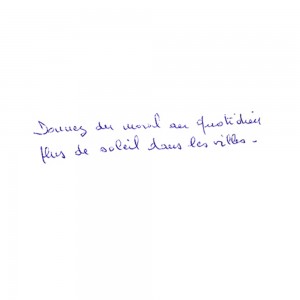 Donnez du moral au quotidien
plus de soleil dans les villes.